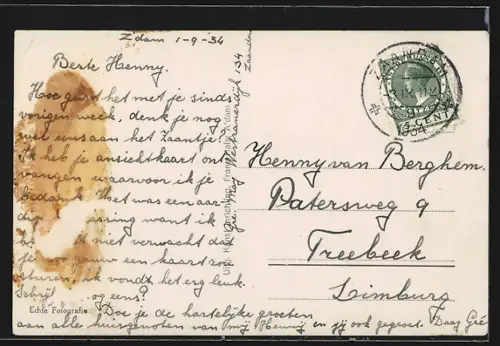 Z'dam 1-9-34
Beste Henny.
Hoe gaat het met je sinds
vorigen week, denk je nog
wel eens aan het Zaantje?
Ik heb je ansichtkaart ont-
vangen waarvoor ik je
bedank. Het was een aar-
di ssing want ik
b ik niet verwacht dat
je zoo gauw een kaart zou
sturen, ik vondt het erg leuk.
Schrijf og eens?
Doe je de hartelijke groeten
aan alle huisgenoten van mij Henny en jij ook gegroet. Daag Gré
134
Zaandam
Gré May Westzanerdijk
Echte Fotografie
ZAANDAM
1934
CENT
Henny van Berghem.
Patersweg 9
Treebeek
Limburg